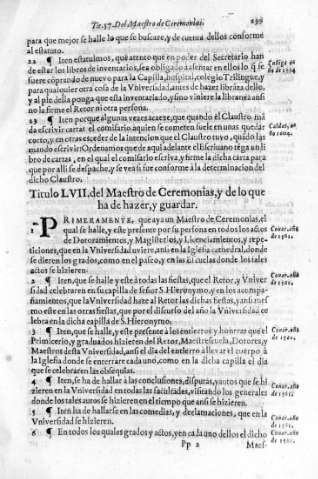 Tit. 57. Del Maestro de Ceremonias. 299
para que mejor se halle lo que se buscare, y de cuenta dellos conforme
al estatuto.
22 ¶ Iten estatuimos, que atento que en poder del Secretario han
de estar los libros de inventarios, sea obligado a assentar en ellos lo q̃ se
fuere cõprando de nuevo para la Capilla, hospital, colegio Trilingue, y
para qualquier otra cosa de la Vniversidad, antes de hazer libráça dello,
y al pie della ponga que esta inventariado, y sino viniere la librança ansi
no la firme el Retor ni otra persona.
23 ¶ Iten porque algunas vezes acaece, que quando el Claustro mã
da escrivir cartas el comissario aquien se cometen suele en unas quedar
corto, y en otras exceder de la intencion que el Claustro tuvo, quãdo las
mandò escrivir: Ordenamos que de aqui adelante el Escrivano tẽga un li
bro de cartas, en el qual el comissario escriva, y firme la dicha carta para
que por alli se despache, y se vea si fue conforme à la determinacion del
dicho Claustro.
Titulo LVII. del Maestro de Ceremonias, y de lo que
ha de hazer, y guardar.
1 ¶ PRIMERAMENTE, que aya un Maestro de Ceremonias, el
qual se halle, y este presente por su persona en todos los actos
de Dotoramientos, y Magisterios, y Licenciamientos, y repe-
ticiones, que en la Vniversidad uviere, ansi en la Iglesia cathedral, donde
se dieren los grados, como en el paseo, y en las escuelas donde los tales
actos se hizieren.
2 ¶ Iten, que se halle y este à todas las fiestas, que el Retor, y Vniver
sidad celebraren en su capilla de señor S. Hieronymo, y en los acompa-
ñamientos, que la Vniversidad haze al Retor las dichas fiestas, y ansi mes
mo este en las otras fiestas, que por el discurso del año la Vniversidad ce
lebra en la dicha capilla de S. Hieronymo.
3 ¶ Iten, que se halle, y este presente à los entierros y honrras que el
Primicerio, y graduados hizieren del Retor, Maestrescuela, Dotores, y
Maestros desta Vniversidad, ansi el dia del entierro à llevar el cuerpo à
la Iglesia donde se enterrare cada uno, como en la dicha capilla el dia
que se celebraren las obsequias.
4 ¶ Iten, se ha de hallar à las conclusiones, disputas, y autos que se hi
zieren en la Vniversidad en todas las facultades, visitando los generales
donde los tales autos se hizieren el tiempo que ansi se hizieren.
5 ¶ Iten ha de hallarse en las comedias, y declamaciones, que en la
Vniversidad se hizieren.
6 ¶ En todos los quales grados y actos, y en cada uno dellos el dicho
Pp 2 Maes-